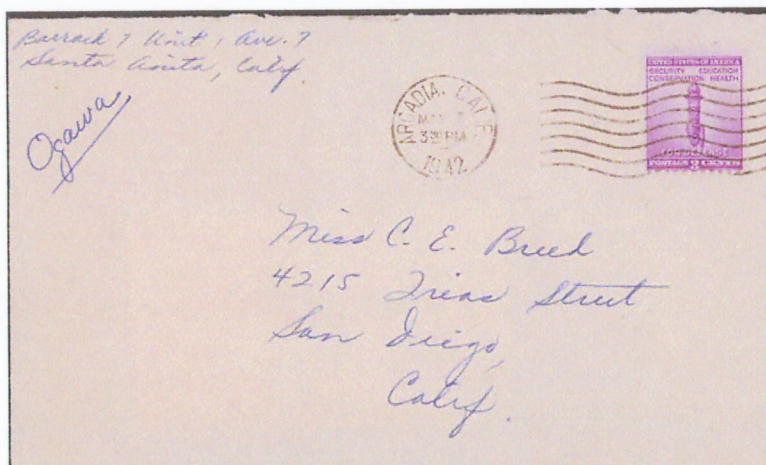 Barrack 7 Unit 1 Ave. 7
Santa Anita, Calif.
Ogawa
ARCADIA, CALIF.
MAY
3 30 PM
1942
UNITED STATES OF AMERICA
SECURITY EDUCATION
CONSERVATION HEALTH
FOR DEFENSE
POSTAGE 3 CENTS
Miss C. E. Breed
4215 Trias Street
San Diego,
Calif.